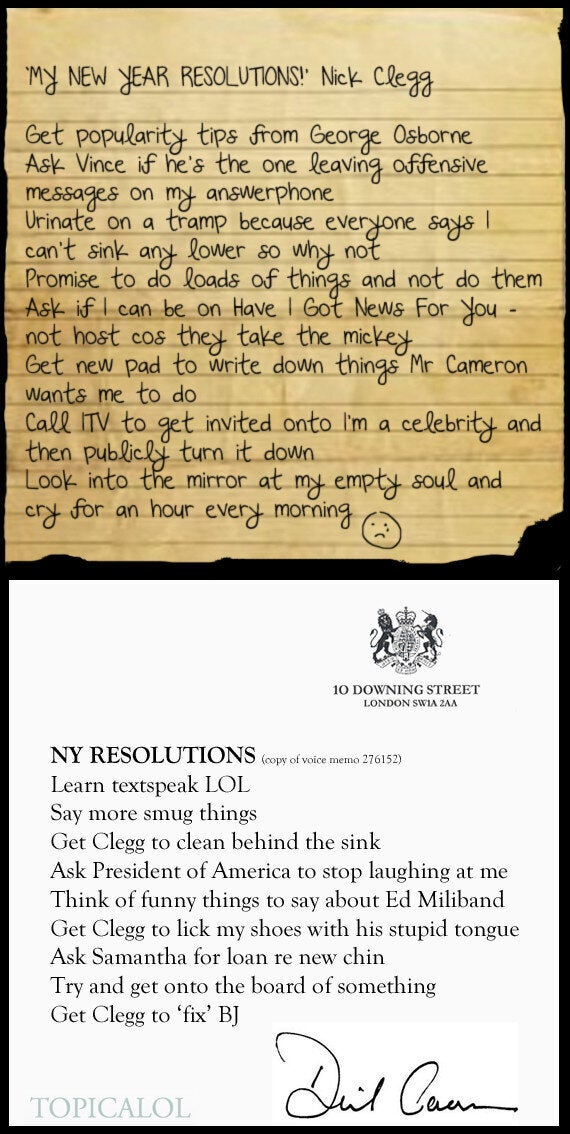 'MY NEW YEAR RESOLUTIONS!' Nick Clegg
Get popularity tips from George Osborne
Ask Vince if he's the one leaving offensive
messages on my answerphone
Urinate on a tramp because everyone says I
can't sink any lower so why not
Promise to do loads of things and not do them
Ask if I can be on Have I Got News For You -
not host cos they take the mickey
Get new pad to write down things Mr Cameron
wants me to do
Call ITV to get invited onto I'm a celebrity and
then publicly turn it down
Look into the mirror at my empty soul and
cry for an hour every morning
10 DOWNING STREET
LONDON SW1A 2AA
NY RESOLUTIONS (copy of voice memo 276152)
Learn textspeak LOL
Say more smug things
Get Clegg to clean behind the sink
Ask President of America to stop laughing at me
Think of funny things to say about Ed Miliband
Get Clegg to lick my shoes with his stupid tongue
Ask Samantha for loan re new chin
Try and get onto the board of something
Get Clegg to ‘fix’ BJ
TOPICALOL